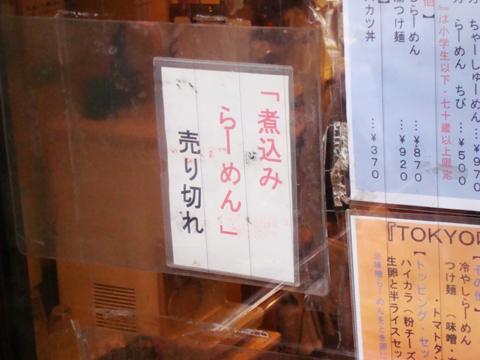 「煮込み
らーめん」
売り切れ
ちゃーしゅーめん …¥970
らーめん ちび …¥500
は小学生以下・七十歳以上限定
他】
らーめん …¥870
つけ麺 …¥920
カツ丼 …¥370
『TOKYO
【その他】
冷やしらーめん
つけ麺（味噌・
・トマトタン
【トッピング・セッ
ハイカラ（粉チーズ
生卵と半ライスセッ